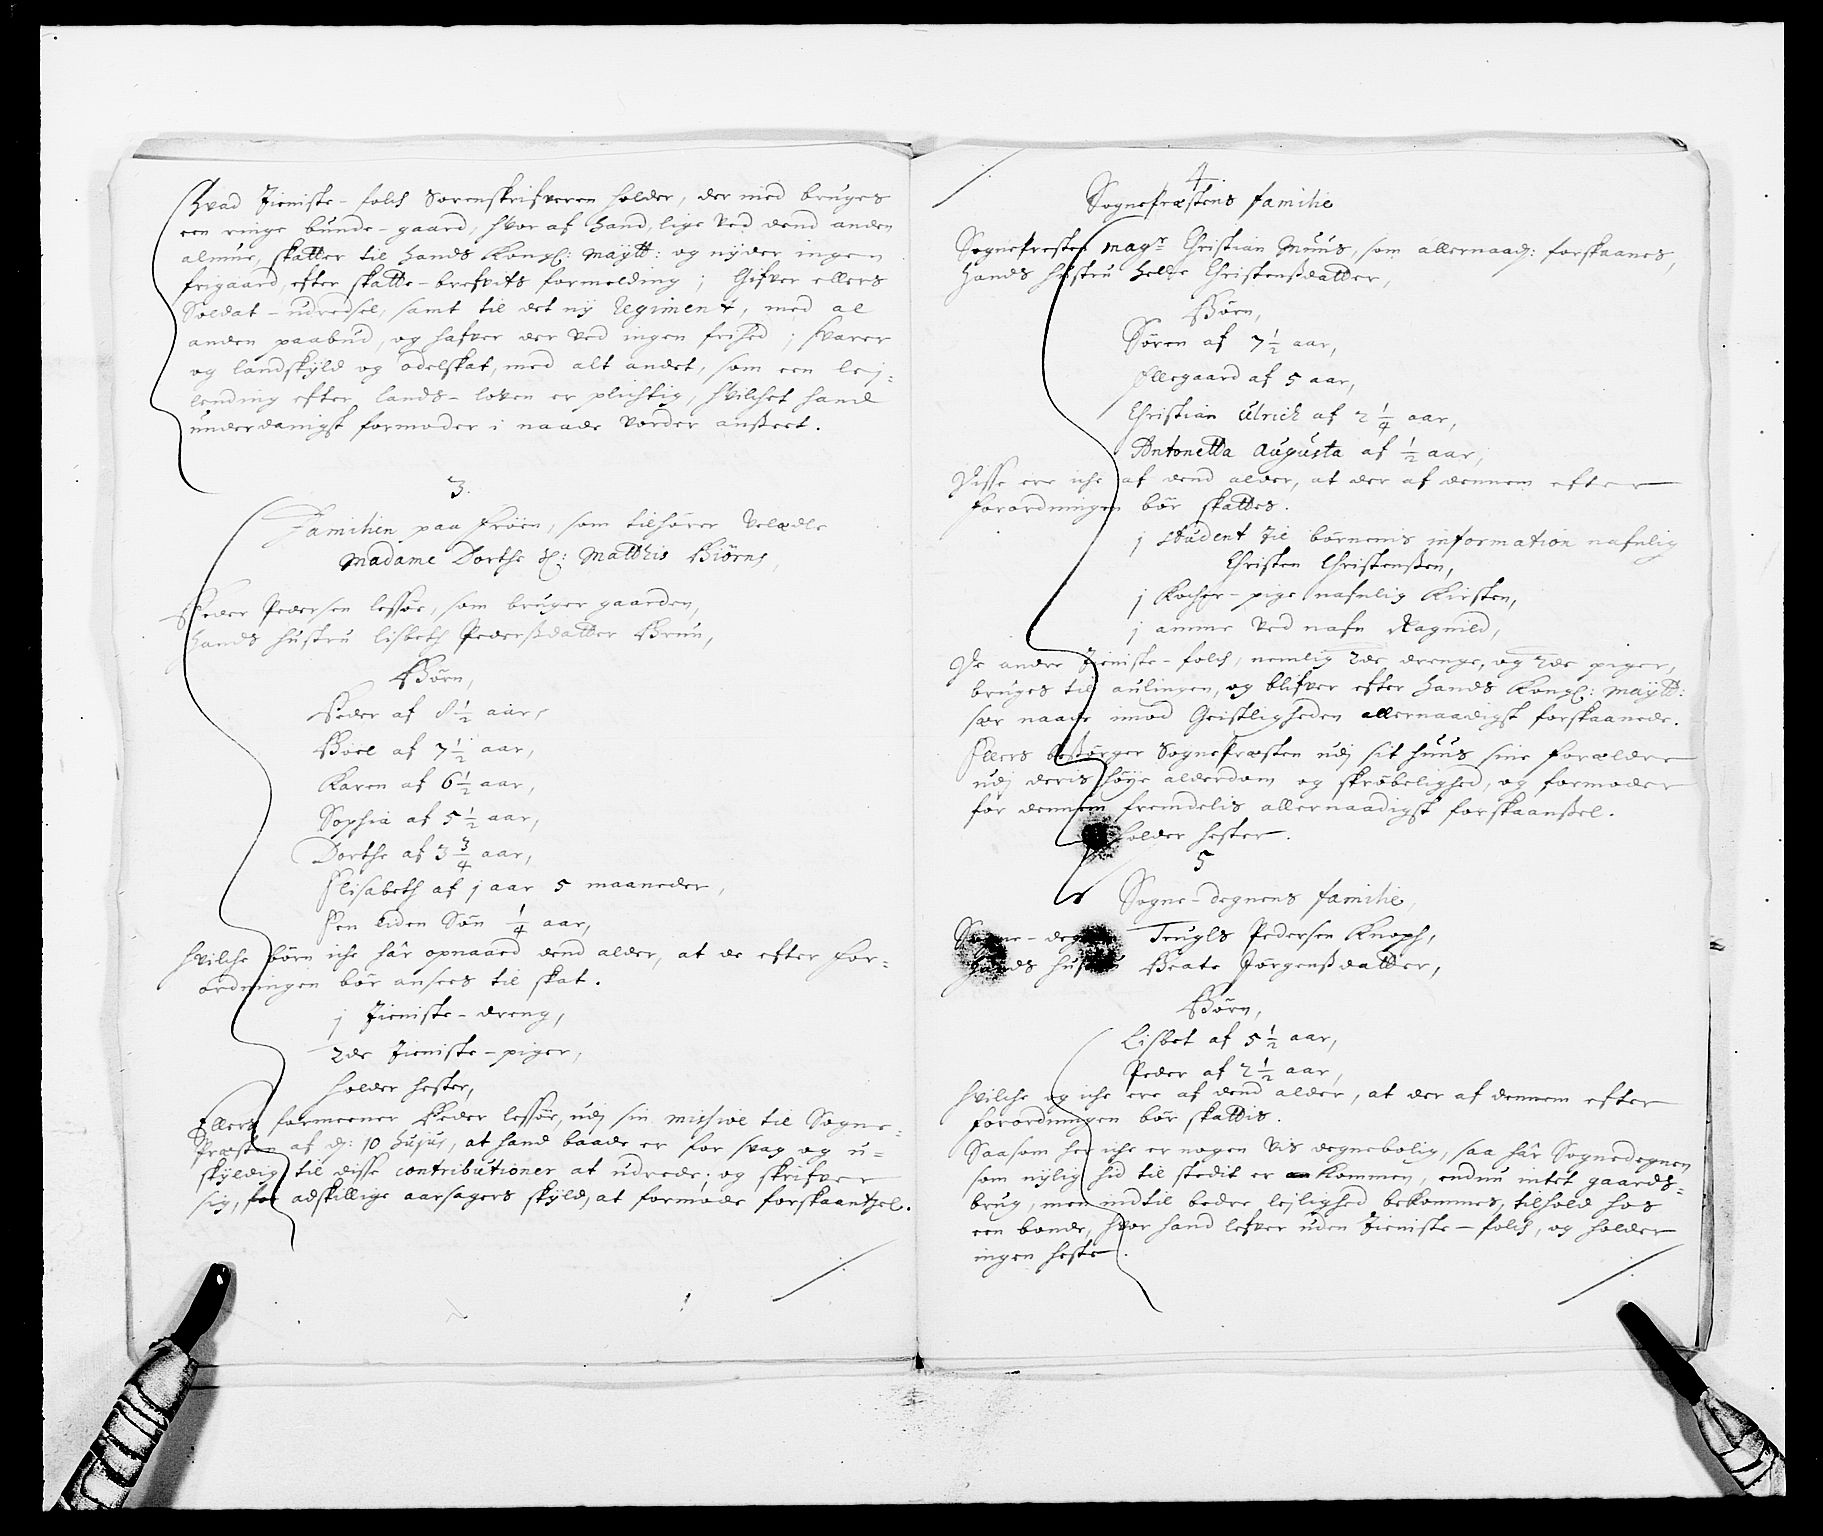 Hvad Tieniste-folch Sorenskrifveren holder, der med bruges
een ringe bunde-gaard, hvor af hand, lige ved dend anden
almue, skatter til hands Kongl: Maytt: og nyder ingen
frigaard, efter skatte-brefvits formelding; Gifver ellers
Soldat-udredsel, samt til det ny Regiment, med al
anden paabud, og hafver der ved ingen frihed; svarer
og landskyld og odelskat, med alt andet, som een lej-
lending efter lands-loven er plichtig, hvilchet hand
underdanigst formoder i naade vorder anseet.
3.
Familien paa Fröen, som tilhörer Velædle
Madame Dorthe Sl: Matthis Biörns,
Peder Pedersen Lessöe, som bruger gaarden,
Hands hustru Lisbeth Pederssdatter Bruun,
Börn,
Peder af 8 1/2 aar,
Boel af 7 1/2 aar,
Karen af 6 1/2 aar,
Sophia af 5 1/2 aar,
Dorthe af 3 3/4 aar,
Elisabeth af j aar 5 maaneder,
Een liden Sön 1/4 aar,
Hvilche börn iche hâr opnaaed dend alder, at de efter for-
ordningen bör ansees til skat.
j Tieniste-dreng,
2de Tieniste-piger,
holder hester,
Ellers formeener Peder Lessöe, udj sin missive til Sogne-
Præsten af d: 10 hujus, at hand baade er for svag og u-
skyldig til disse contributioner at udrede; og skrifver
sig, for adskillige aarsagers skyld, at formode forskaansel.
4.
Sognepræstens familie
Sognepresten Magr Christian Muus, som allernaad: forskaanes,
Hands hustru Helle Christenssdatter,
Börn,
Sören af 7 1/2 aar,
Ellegaard af 5 aar,
Christian Ulrich af 2 1/4 aar,
Antonetta Augusta af 1/2 aar,
Disse ere iche af dend alder, at der af dennem efter
forordningen bör skattes.
j student til börnenis information nafnlig
Christen Christenssen,
j Kocher-pige nafnlig Kirsten,
j amme ved nafn Ragnild,
De andre Tieniste-folch, nemlig 2de drenge, og 2de piger,
bruges til aulingen, og blifver efter Hands Kongl: Maytt:
sær naade imod Geistligheden allernaadigst forskaanede.
Ellers besörger Sognepræsten udj sit huus sine forældre
udj deris höye alderdom og skröbelighed, og formoder
for dennem fremdelis allernaadigst forskaanssel.
holder hester.
5
Sogne-degnens familie,
Sogne-degnen Truyls Pedersen Knoph,
Hands hustru Beate Jörgenssdatter,
Börn,
Lisbet af 5 1/2 aar,
Peder af 2 1/2 aar,
Hvilche og iche ere af dend alder, at der af dennem efter
forordningen bör skattis.
Saasom her iche er nogen vis degnebolig, saa hâr Sognedegnen
som nylig hid til stedit er kommen, endnu intet gaards-
brug, men indtil bedre lejlighed bekommes, tilhold hos
een bonde, hvor hand lefver uden Tieniste-folch, og holder
ingen heste.